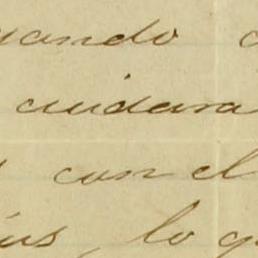 uando c
cuidara
s con el
ius, lo q